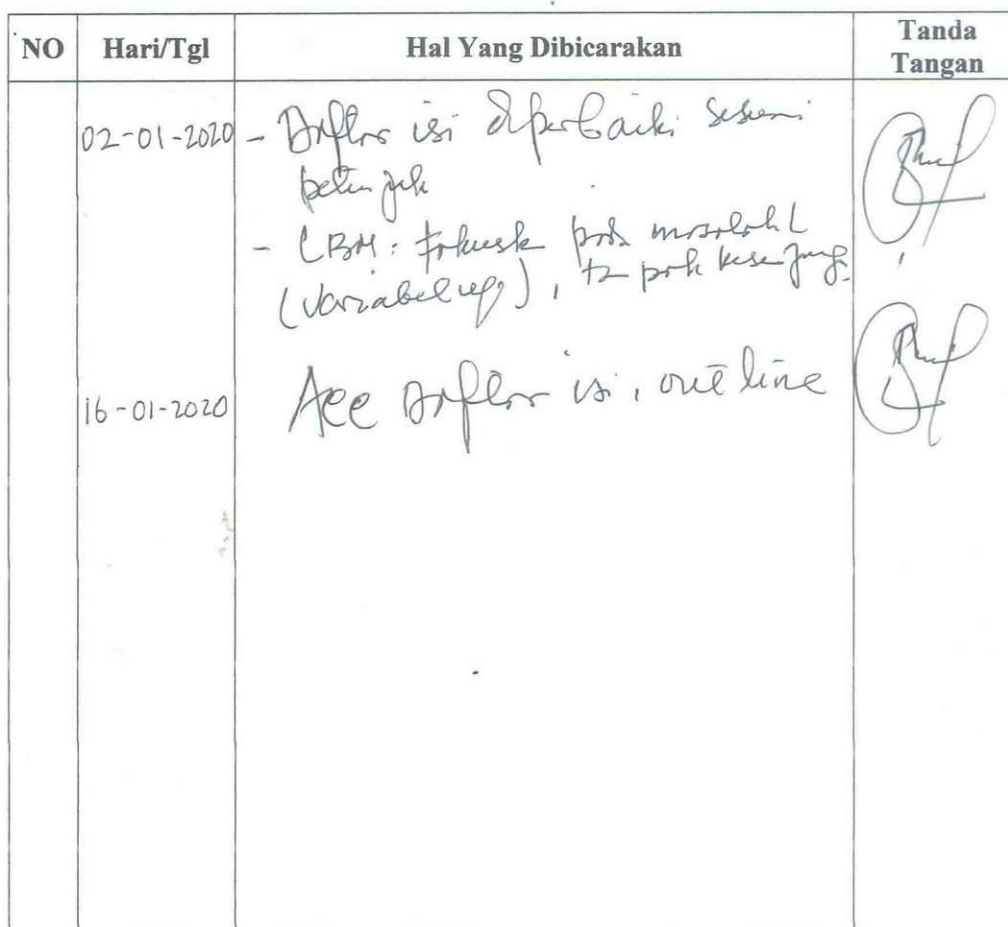 NO Hari/Tgl Hal Yang Dibicarakan Tanda Tangan
02-01-2020 - Daftar isi diperbaiki sesuai
petunjuk
- LBM: fokusk pada masalah
(variabel nya), tampak kesenjang
16-01-2020 Acc Daftar isi, out line